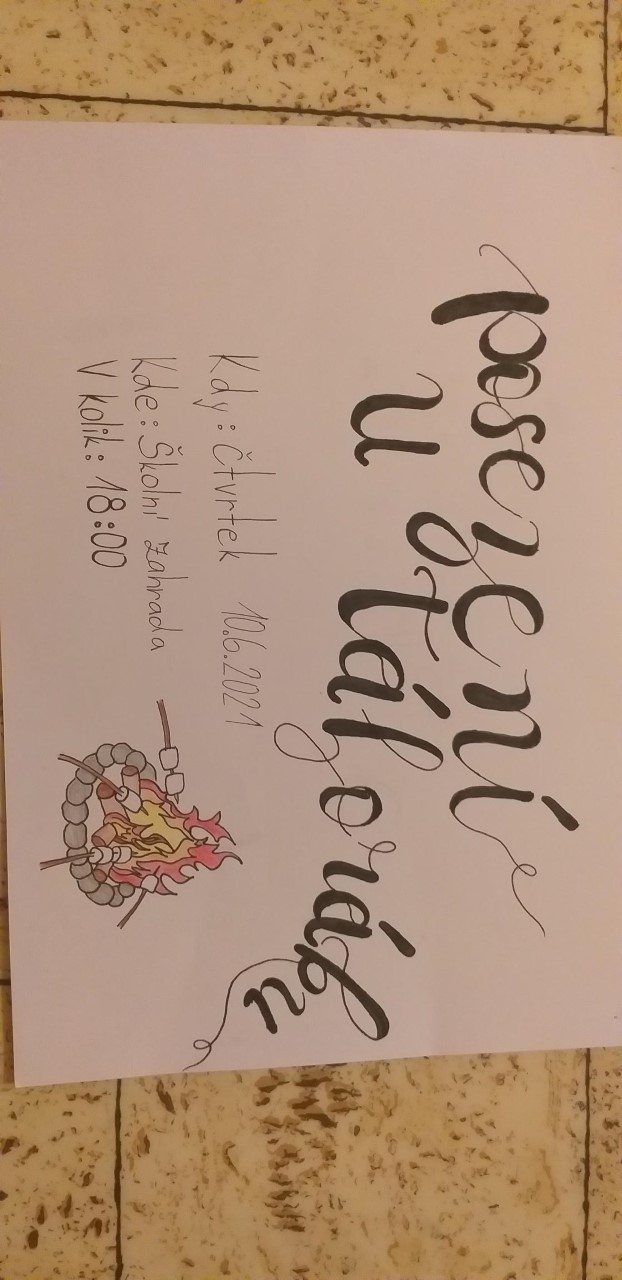 posezení
u táboráku
Kdy: Čtvrtek 10.6.2021
Kde: Školní zahrada
V kolik: 18:00